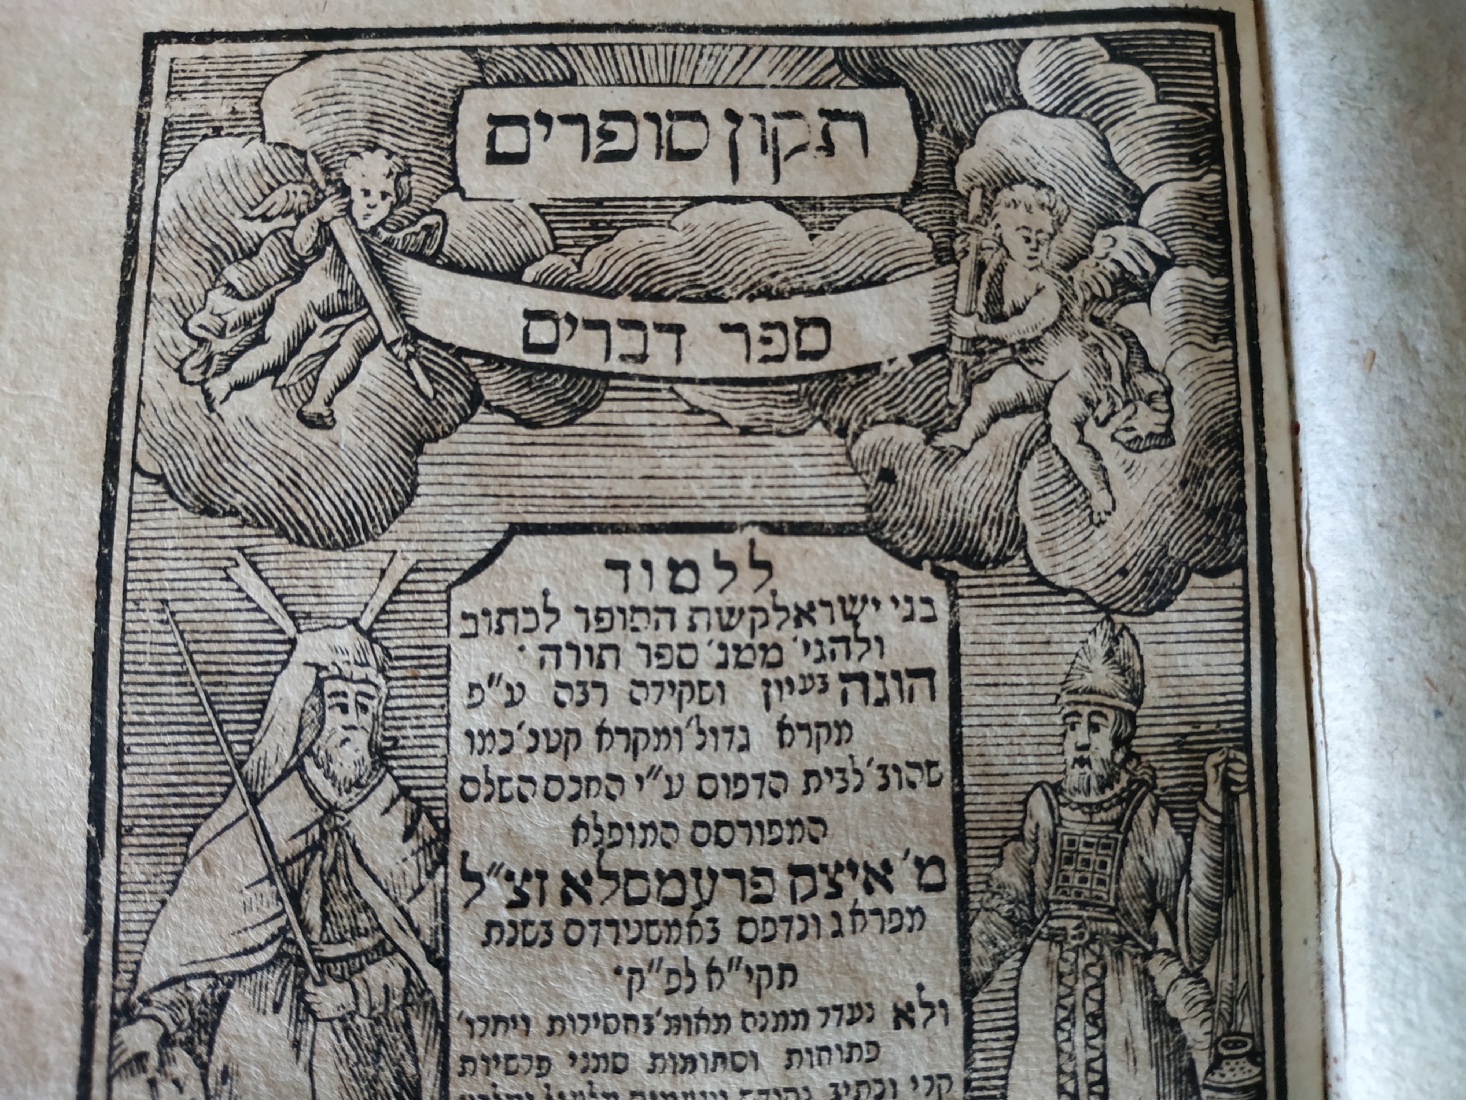 תקון סופרים
ספר דברים
ללמוד
בני ישראל קשת הסופר לכתוב
ולהגי׳ ממנ׳ ספר תורה ·
הוגה בעיון ושקידה רבה ע״פ
מקרא גדול׳ ומקרא קטנ׳ כמו
שהוב׳ לבית הדפוס ע״י החכם השלם
המפורסם המופלא
מ׳ איצק פרעמסלא זצ״ל
מפראג ונדפס באמשטירדם בשנת
תקי״א לפ״ק·
ולא נעדר ממנה מאומ׳ בחסירות ויתרו׳
פתוחות וסתומות סמני פרשיות
קרי וכתיב